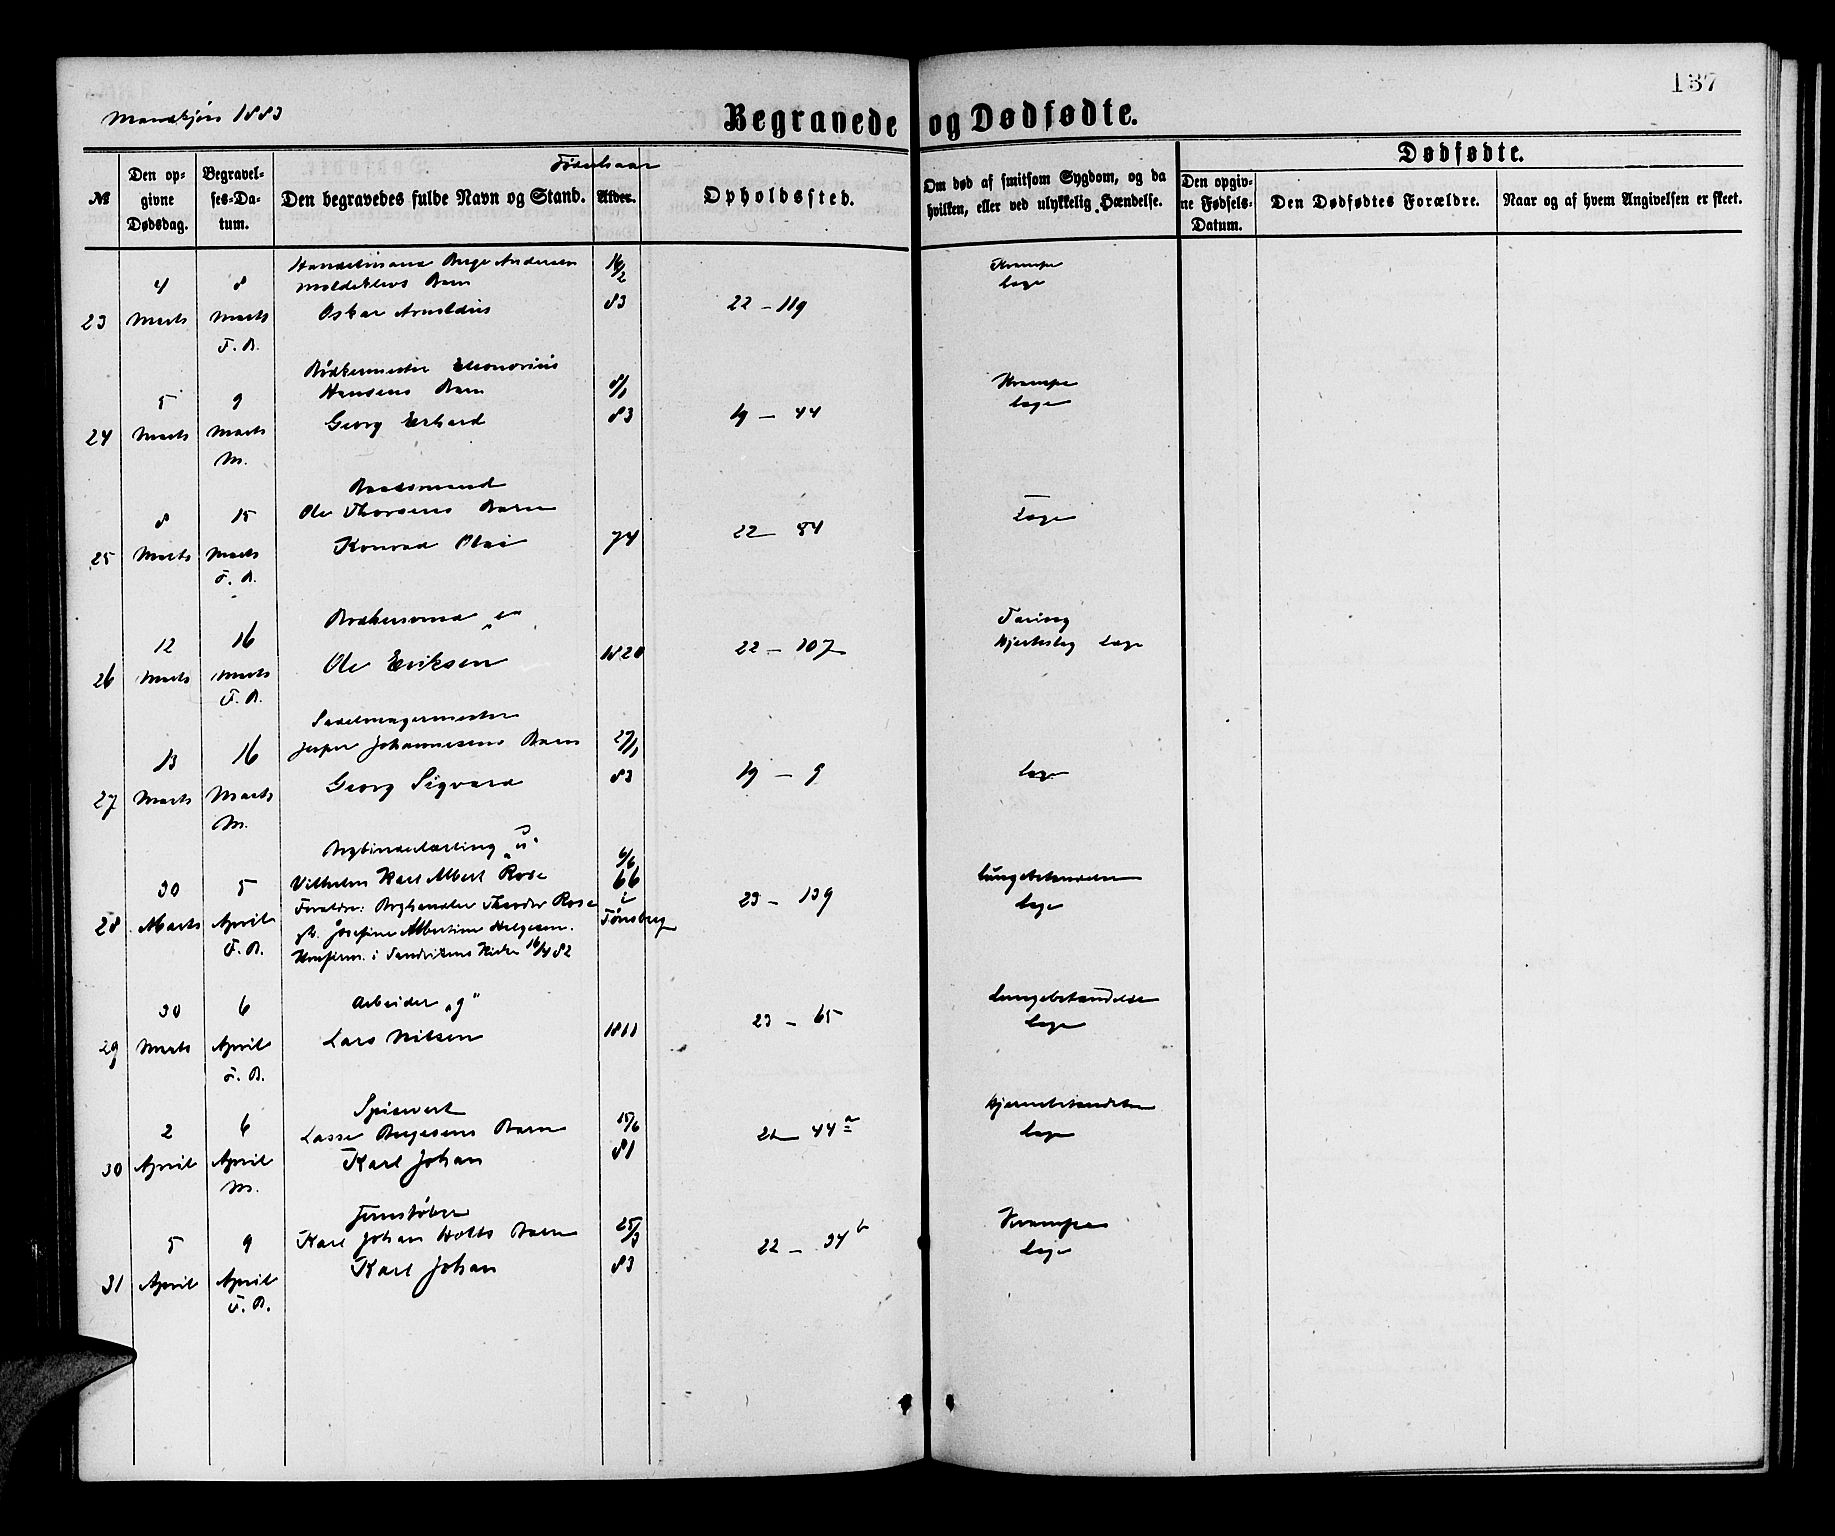 137
Mandkjøn 1883
Begravede og Dødfødte.
Dødfødte.
№
Den opgivne Dødsdag.
Begravelses-Datum.
Den begravedes fulde Navn og Stand.
Fødselsaar
Alder.
Opholdssted.
Om død af smitsom Sygdom, og da hvilken, eller ved ulykkelig Hændelse.
Den opgivne Fødsels-Datum.
Den Dødfødtes Forældre.
Naar og af hvem Angivelsen er skeet.
Handelsmand Berge Andersen 16/2 Krampe
4 8 Moldeklevs Barn Læge
23 Marts Marts Oskar Arnoldus 83 22 – 119
F. B.
Bødkermester Eleonorius
5 9 Hansens Barn 8/1 Krampe
24 Marts Marts Georg Erhard 83 19 – 44 Læge
M.
Baadsmand
8 15 Ole Thorsens Barn Læge
25 Marts Marts Konrad Olai 74 22 – 84
F. B.
Bødkersvend
12 16 Ole Eriksen 1820 22 – 107 Hjerteslag Læge
26 Marts Marts
F. B.
Sadelmagermester
13 16 Jesper Johannesens Barn 27/1
27 Marts Marts Georg Sigvard 83 19 – 9 Læge
M.
Bogbinderlærling „u“ 6/6
30 5 Vilhelm Karl Albert Rose 66 23 – 139 Lungebetændelse
28 Marts April Forældre: Boghandler Theodor Rose i Læge
F. B. g. Josefine Albertine Helgesen. Tønsberg
Konfirm. i Sandvikens Kirke 16/4 82
30 6 Arbeider „g“ Lungebetændelse
29 Marts April Lars Nilsen 1811 23 – 65 Læge
F. B.
Spisevert Hjernebetændelse
2 6 Lasse Bergesens Barn 15/6 21 – 44a Læge
30 April April Karl Johan 81
M.
Jernstøber
5 9 Karl Johan Holts Barn 25/3 22 – 34b Krampe
31 April April Karl Johan 83 Læge
F. B.